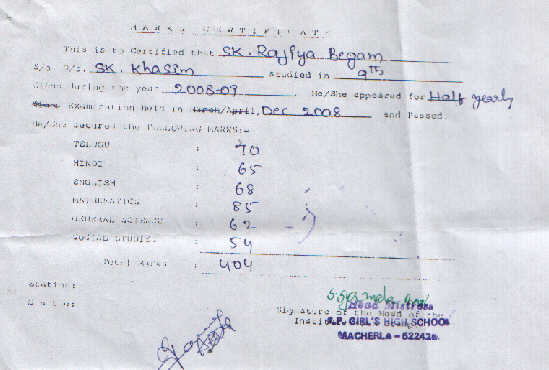 MARKS CERTIFICATE
This is to Certified that SK. Rajiya Begam
S/o D/o. SK. Khasim Studied in 9th
Class during the year 2008-09 He/She appeared for Half yearly
Examination held in March/April, Dec 2008 and Passed.
He/She secured the FOLLOWING MARKS:-
TELUGU : 70
HINDI : 65
ENGLISH : 68
MATHEMATICS : 85
GENERAL SCIENCE : 62
SOCIAL STUDIES. : 54
Total Marks : 404
Station:
Date:
Head Mistress
Signature of the Head of the
Institution
Z.P. GIRL'S HIGH SCHOOL
MACHERLA - 522426.